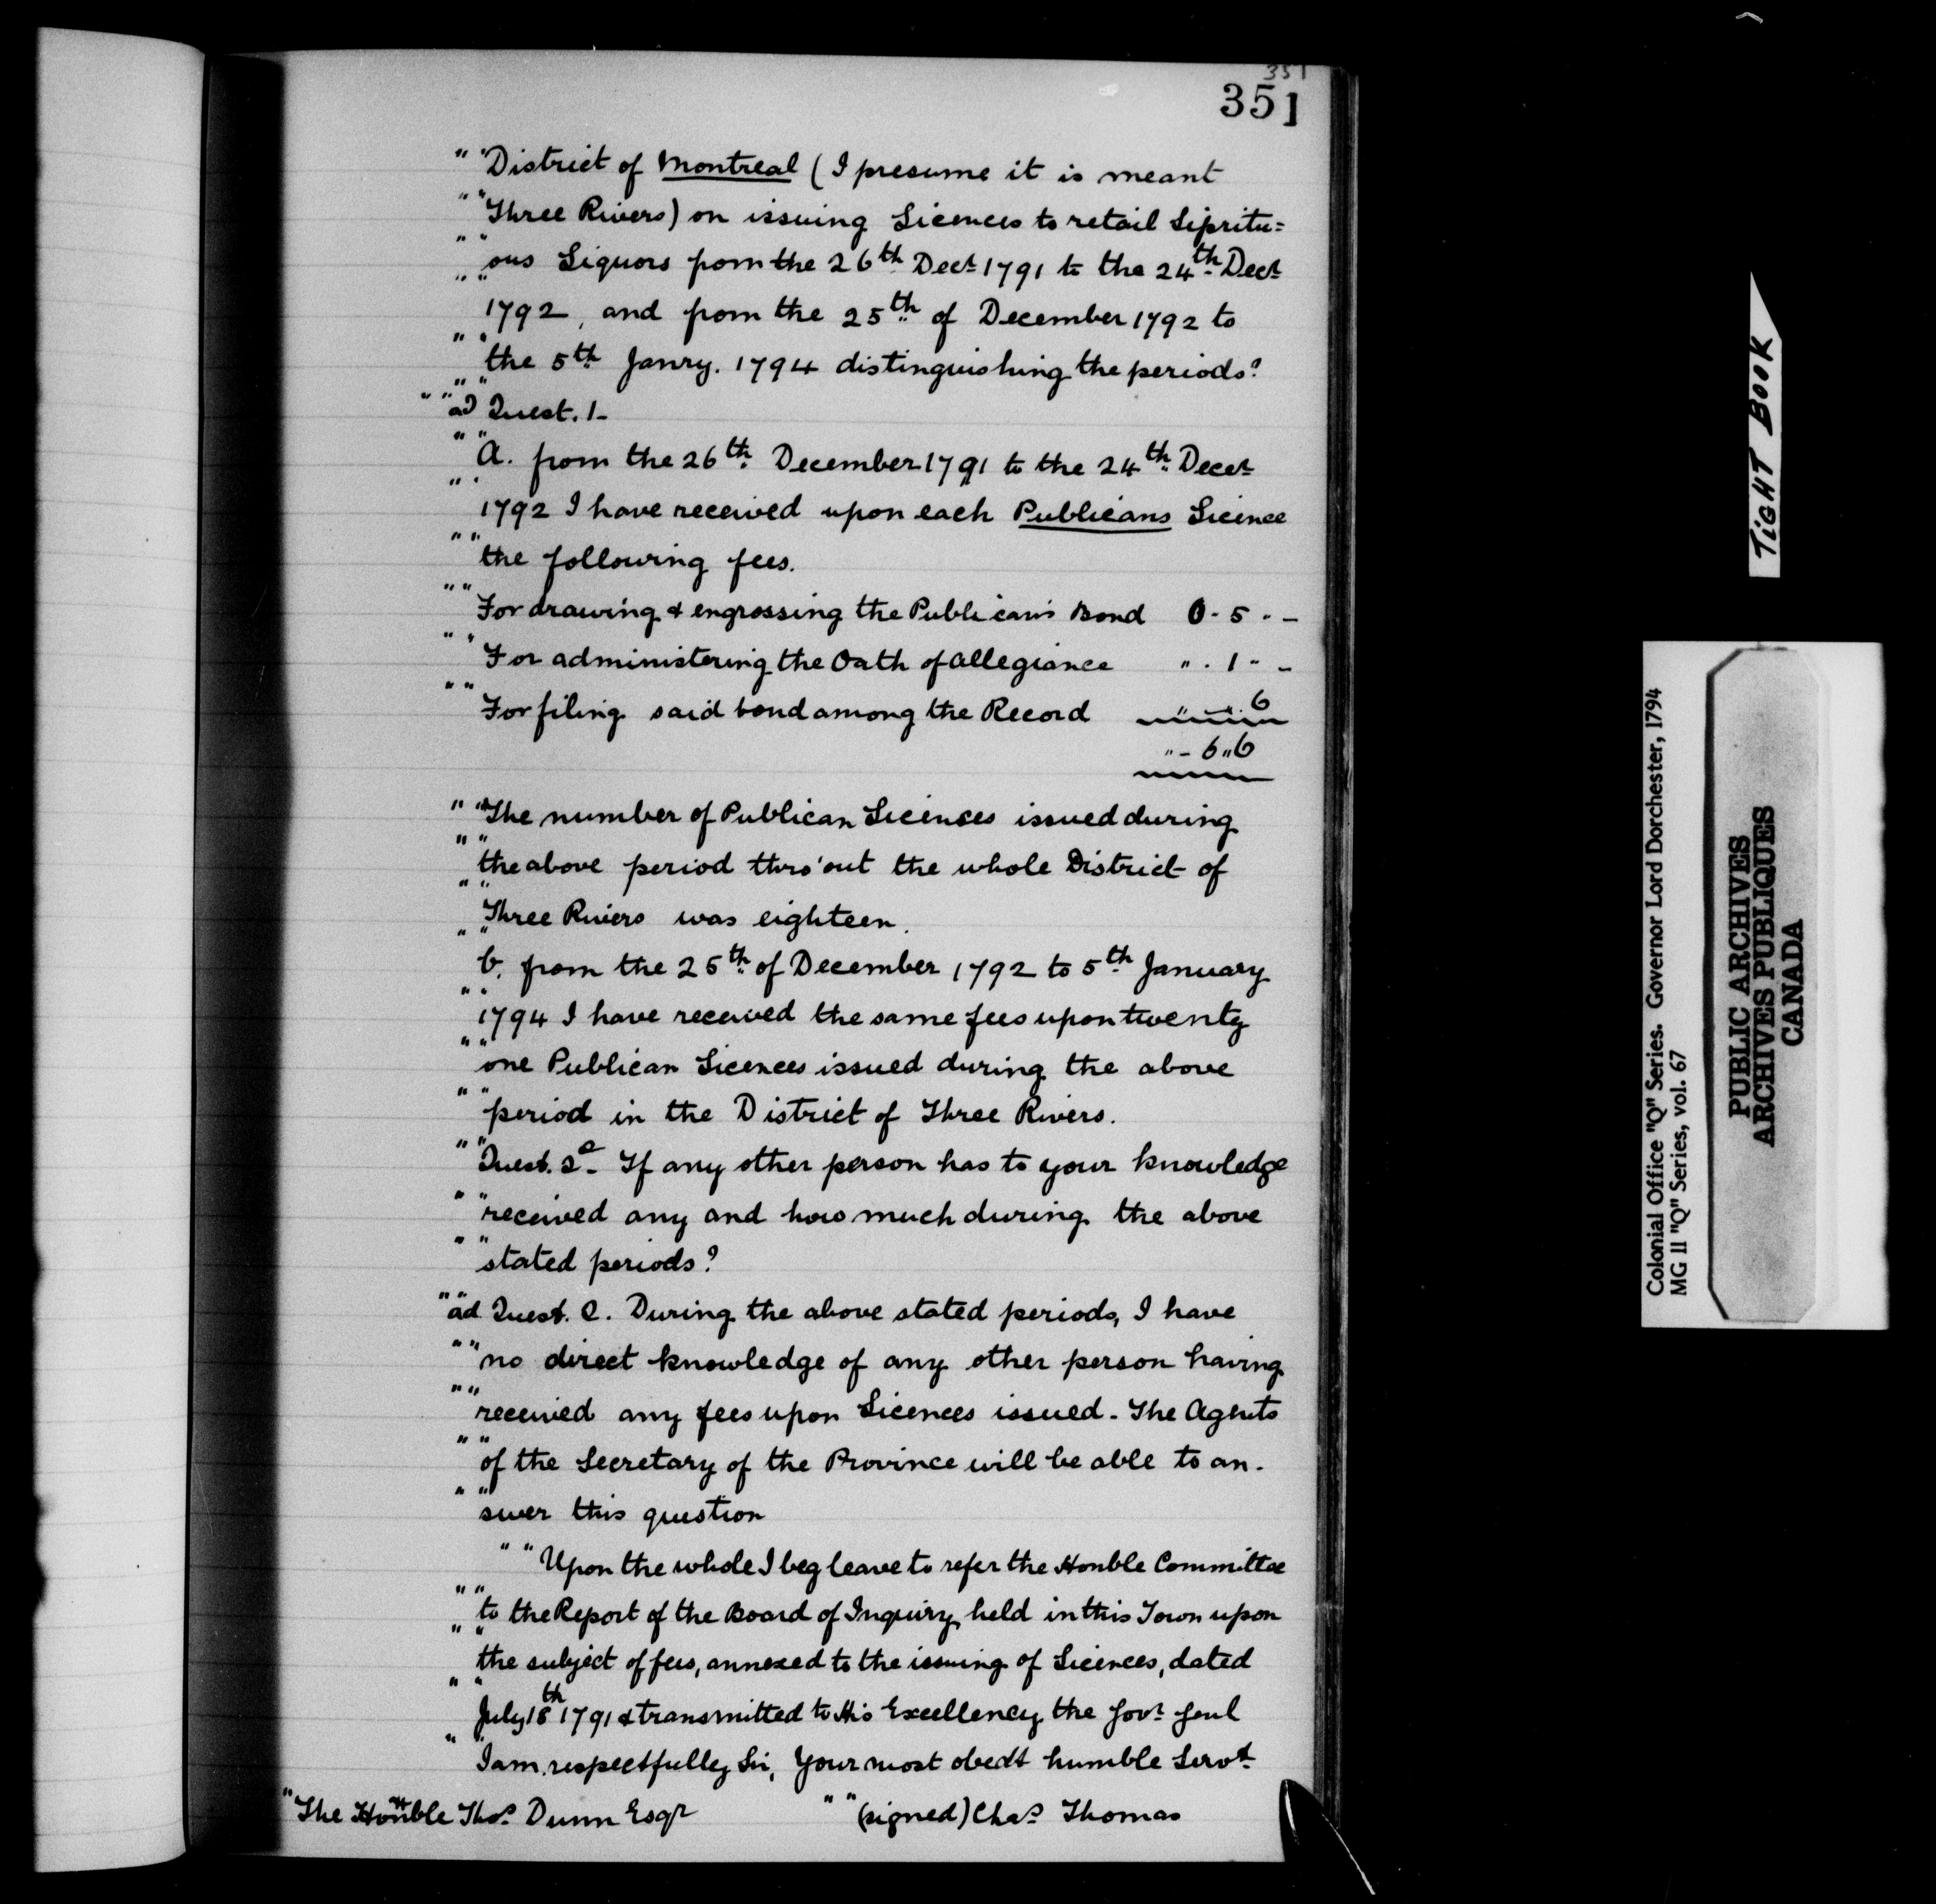 351
351
" "District of Montreal (I presume it is meant
" "Three Rivers) on issuing Licences to retail Spiritu=
" "ous Liquors from the 26th Decr 1791 to the 24th Decr
" "1792, and from the 25th of December 1792 to
" "the 5th Janry. 1794 distinguishing the periods?
" "ad Quest. 1-
" "a. from the 26th December 1791 to the 24th Decer
" "1792 I have received upon each Publicans Licence
" "the following fees.
" "For drawing & engrossing the Publican's Bond 0 - 5 - -
" "For administering the Oath of allegiance " . 1 - -
" "For filing said bond among the Record " " 6
" - 6 " 6
" "The number of Publican Licences issued during
" "the above period thro'out the whole District of
" "Three Rivers was eighteen.
" "b. from the 25th of December 1792 to 5th January
" "1794 I have received the same fees upon twenty
" "one Publican Licences issued during the above
" "period in the District of Three Rivers.
" "Quest. 2d- If any other person has to your knowledge
" "received any and how much during the above
" "stated periods?
" "ad Quest. 2. During the above stated periods, I have
" "no direct knowledge of any other person having
" "received any fees upon Licences issued - The Agents
" "of the Secretary of the Province will be able to an-
" "swer this question
" "Upon the whole I beg leave to refer the Honble Committee
" "to the Report of the Board of Inquiry held in this Town upon
" "the subject of fees, annexed to the issuing of Licences, dated
" "July 18th 1791 & transmitted to His Excellency the Govr Genl
" "I am respectfully Sir, Your most obedt humble Servt
"The Honble Thos. Dunn Esqr " "(signed) Chas. Thomas
TIGHT BOOK
Colonial Office "Q" Series. Governor Lord Dorchester, 1794
MG 11 "Q" Series, vol. 67
PUBLIC ARCHIVES
ARCHIVES PUBLIQUES
CANADA